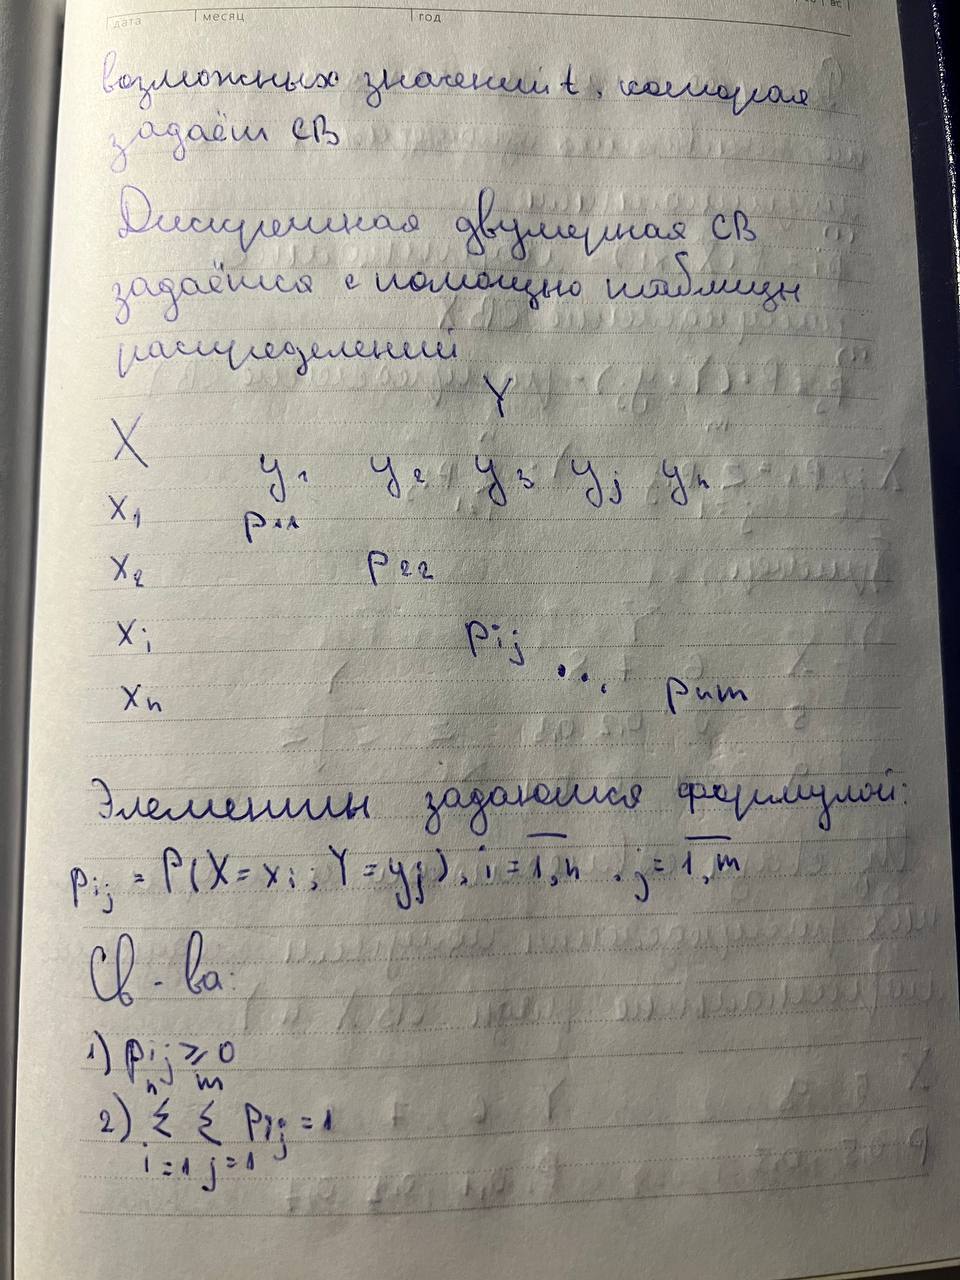 дата месяц год вс
возможных значений t, которая
задаёт СВ
Дискретная двумерная СВ
задаётся с помощью таблицы
распределений
Y
X
y₁ y₂ y₃ yⱼ yₙ
x₁
p₁₁
x₂ p₂₂
xᵢ pᵢⱼ
⋱
xₙ pₙₘ
Элементы задаются формулой:
pᵢⱼ = P(X = xᵢ; Y = yⱼ), i = 1,n̅, j = 1,m̅
Св-ва:
1) pᵢⱼ ⩾ 0
n m
2) Σ Σ pᵢⱼ = 1
i=1 j=1